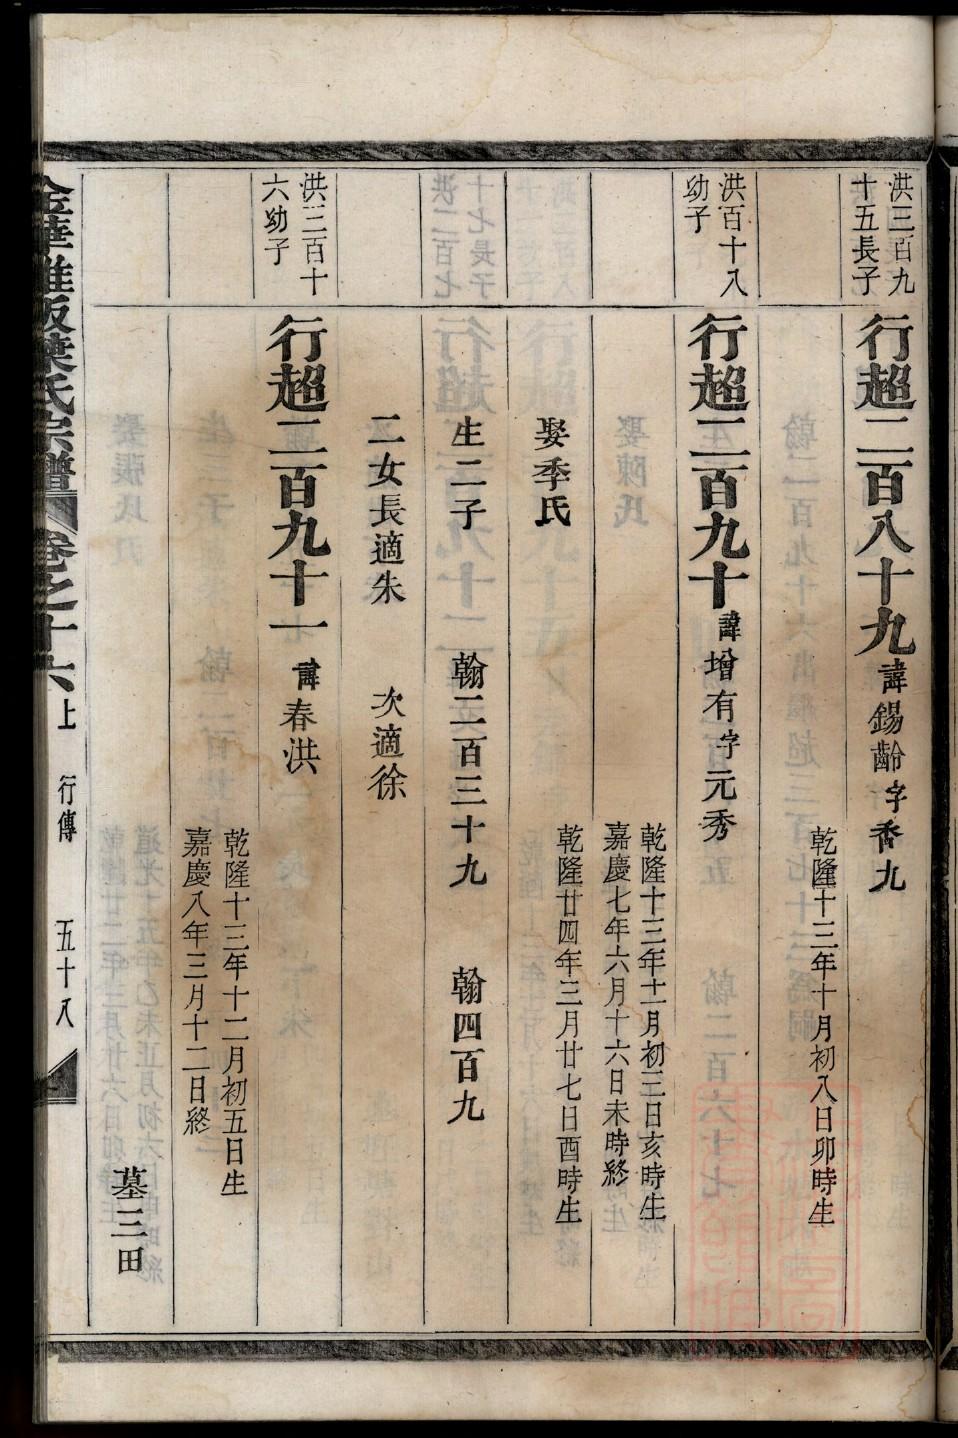 洪三百九
十五長子
行超二百八十九諱錫齡字香九
乾隆十三年十月初八日卯時生
洪百十八
幼子
行超二百九十諱增有字元秀
乾隆十三年十一月初三日亥時生
嘉慶七年六月十六日未時終
娶季氏
乾隆廿四年三月廿七日酉時生
生二子 翰二百三十九 翰四百九
二女長適朱 次適徐
洪三百十
六幼子
行超二百九十一諱春洪
乾隆十三年十二月初五日生
嘉慶八年三月十二日終
墓三田
金華 氏宗譜 卷之十六上 行傳 五十八